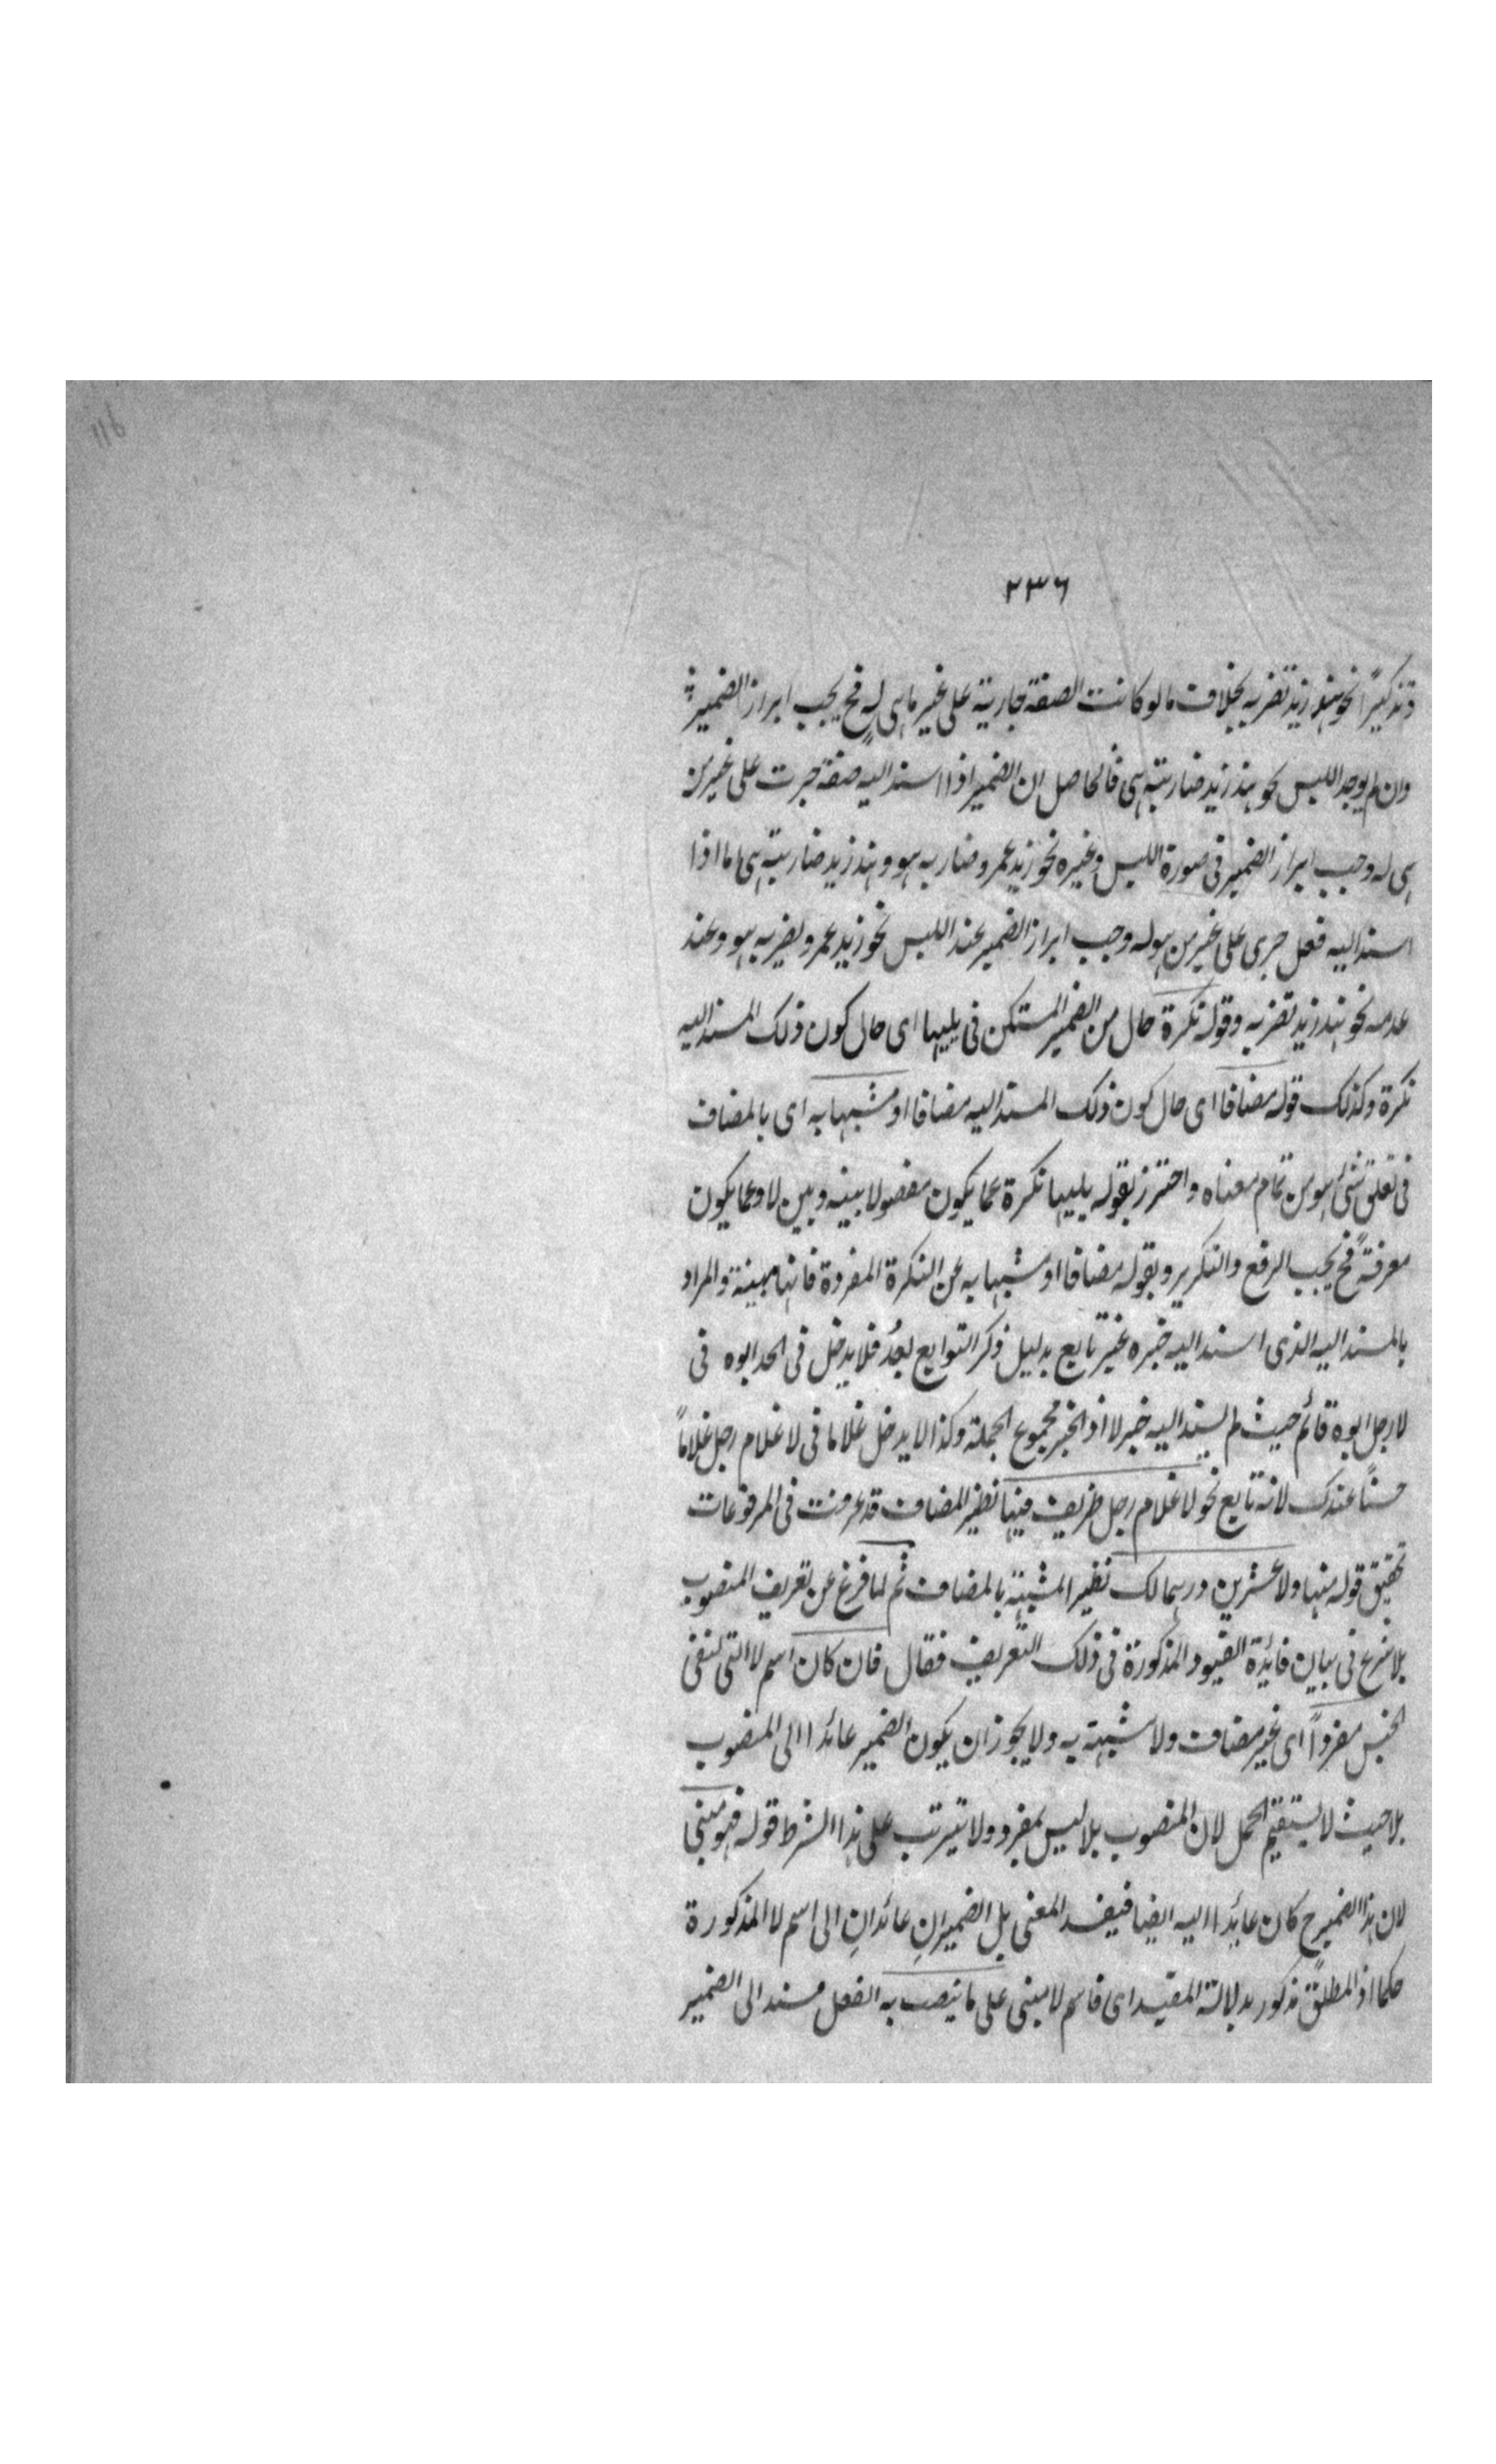 ٢٣٦
وتذكيرًا نحو هند زيد تضربه بخلاف ما لو كانت الصفة جارية على غير ما هى له فح يجب ابراز الضمير
وان لم يوجد اللبس نحو هند زيد ضاربته هى فالحاصل ان الضمير اذا اسند اليه صفة جرت على غير من
هى له وجب ابراز الضمير فى صورة اللبس وغيره نحو زيد عمرو ضاربه هو وهند زيد ضاربته هى اما اذا
اسند اليه فعل جرى على غير من هو له وجب ابراز الضمير عند اللبس نحو زيد عمرو يضربه هو وعند
عدمه نحو هند زيد تضربه وقوله نكرة حال من الضمير المستكن فى يليها اى حال كون ذلك المسند اليه
نكرة وكذلك قوله مضافا اى حال كون ذلك المسند اليه مضافا او مشبها به اى بالمضاف
فى تعلق شئ هو من تمام معناه واحترز بقوله يليها نكرة عما يكون مفصولا بينه وبين لا وعما يكون
معرفةً فح يجب الرفع والتكرير وبقوله مضافا او مشبها به عن النكرة المفردة فانها مبينة والمراد
بالمسند اليه الذى اسند اليه خبره غير تابع بدليل ذكر التوابع بعدُ فلا يدخل فى الحد ابوه فى
لا رجل ابوه قائم حيث لم يسند اليه خبر لا اذ الخبر مجموع الجملة وكذا لا يدخل غلاما فى لا غلام رجل غلامًا
حسنًا عندك لانه تابع نحو لا غلام رجل ظريف فيها نظير المضاف قد عرفت فى المرفوعات
تحقيق قوله فيها ولا عشرين درهما لك نظير المشبّه بالمضاف ثم لما فرغ عن تعريف المنصوب
بلا شرع فى بيان فائدة القيود المذكورة فى ذلك التعريف فقال فان كان اسم لا التى لنفى
الجنس مفردًا اى غير مضاف ولا مشبه به ولا يجوز ان يكون الضمير عائدا الى المنصوب
بلا حيث لا يستقيم الحمل لان المنصوب بلا ليس بمفرد ولا يترتب على هذا الشرط قوله فهو مبنى
لان هذا الضمير ح كان عايدا اليه ايضا فيفسد المعنى بل الضميرانِ عائدانِ الى اسم لا المذكورة
حكما اذ المطلق مذكور بدلالة المقيد اى فاسم لا مبنى على ما ينصب به الفعل مسند الى الضمير